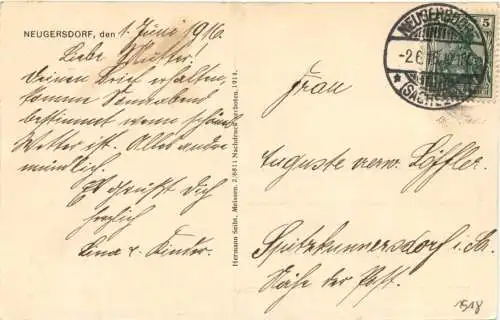 NEUGERSDORF, den 1. Juni 1916
Liebe Mutter!
Deinen Brief erhalten,
komme Sonnabend
bestimmt wenn schönes
Wetter ist. Alles andre
mündlich.
Es grüßt Dich
herzlich
Lina u. Kinder.
Hermann Seibt, Meissen. Nachdruck verboten. 1914.
NEUGERSDORF
-2.6.16.
(SACHSEN)
5
Frau
Auguste verw. Löffler
Spitzkunnersdorf i. Sa.
Nähe der Post.
1518